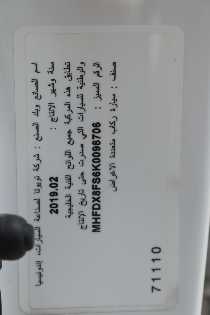 اسم الصانع وبلد الصنع : شركة تويوتا لصناعة السيارات، إندونيسيا
سنة وشهر الإنتاج : 2019.02
تطابق هذه المركبة جميع اللوائح الفنية الخليجية
والوطنية للسيارات التي صدرت حتى تاريخ الإنتاج
الرقم المميز : MHFDX8FS6K0098706
صنف : سيارة ركاب متعددة الأغراض
71110